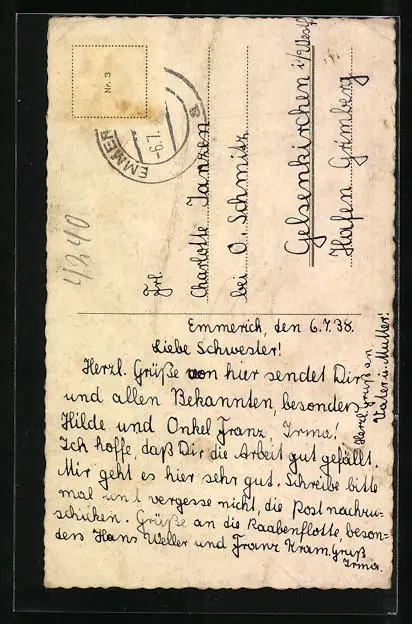 Nr. 3
EMMER
-6.7.
a
4340
Frl.
Charlotte Janzen
bei O. Schmitz
Gelsenkirchen i/Westf.
Hafen Grimberg
Emmerich, den 6.7.38.
Liebe Schwester!
Herzl. Grüße von hier sendet Dir
und allen Bekannten, besonders
Hilde und Onkel Franz, Irma!
Ich hoffe, daß Dir die Arbeit gut gefällt.
Mir geht es hier sehr gut. Schreibe bitte
mal und vergesse nicht, die Post nachzu-
schicken. Grüße an die Raabenflotte, beson-
ders Hans Weller und Franz Kram. Gruß
Irma.
Herzl. Grüß an
Vater u. Mutter!